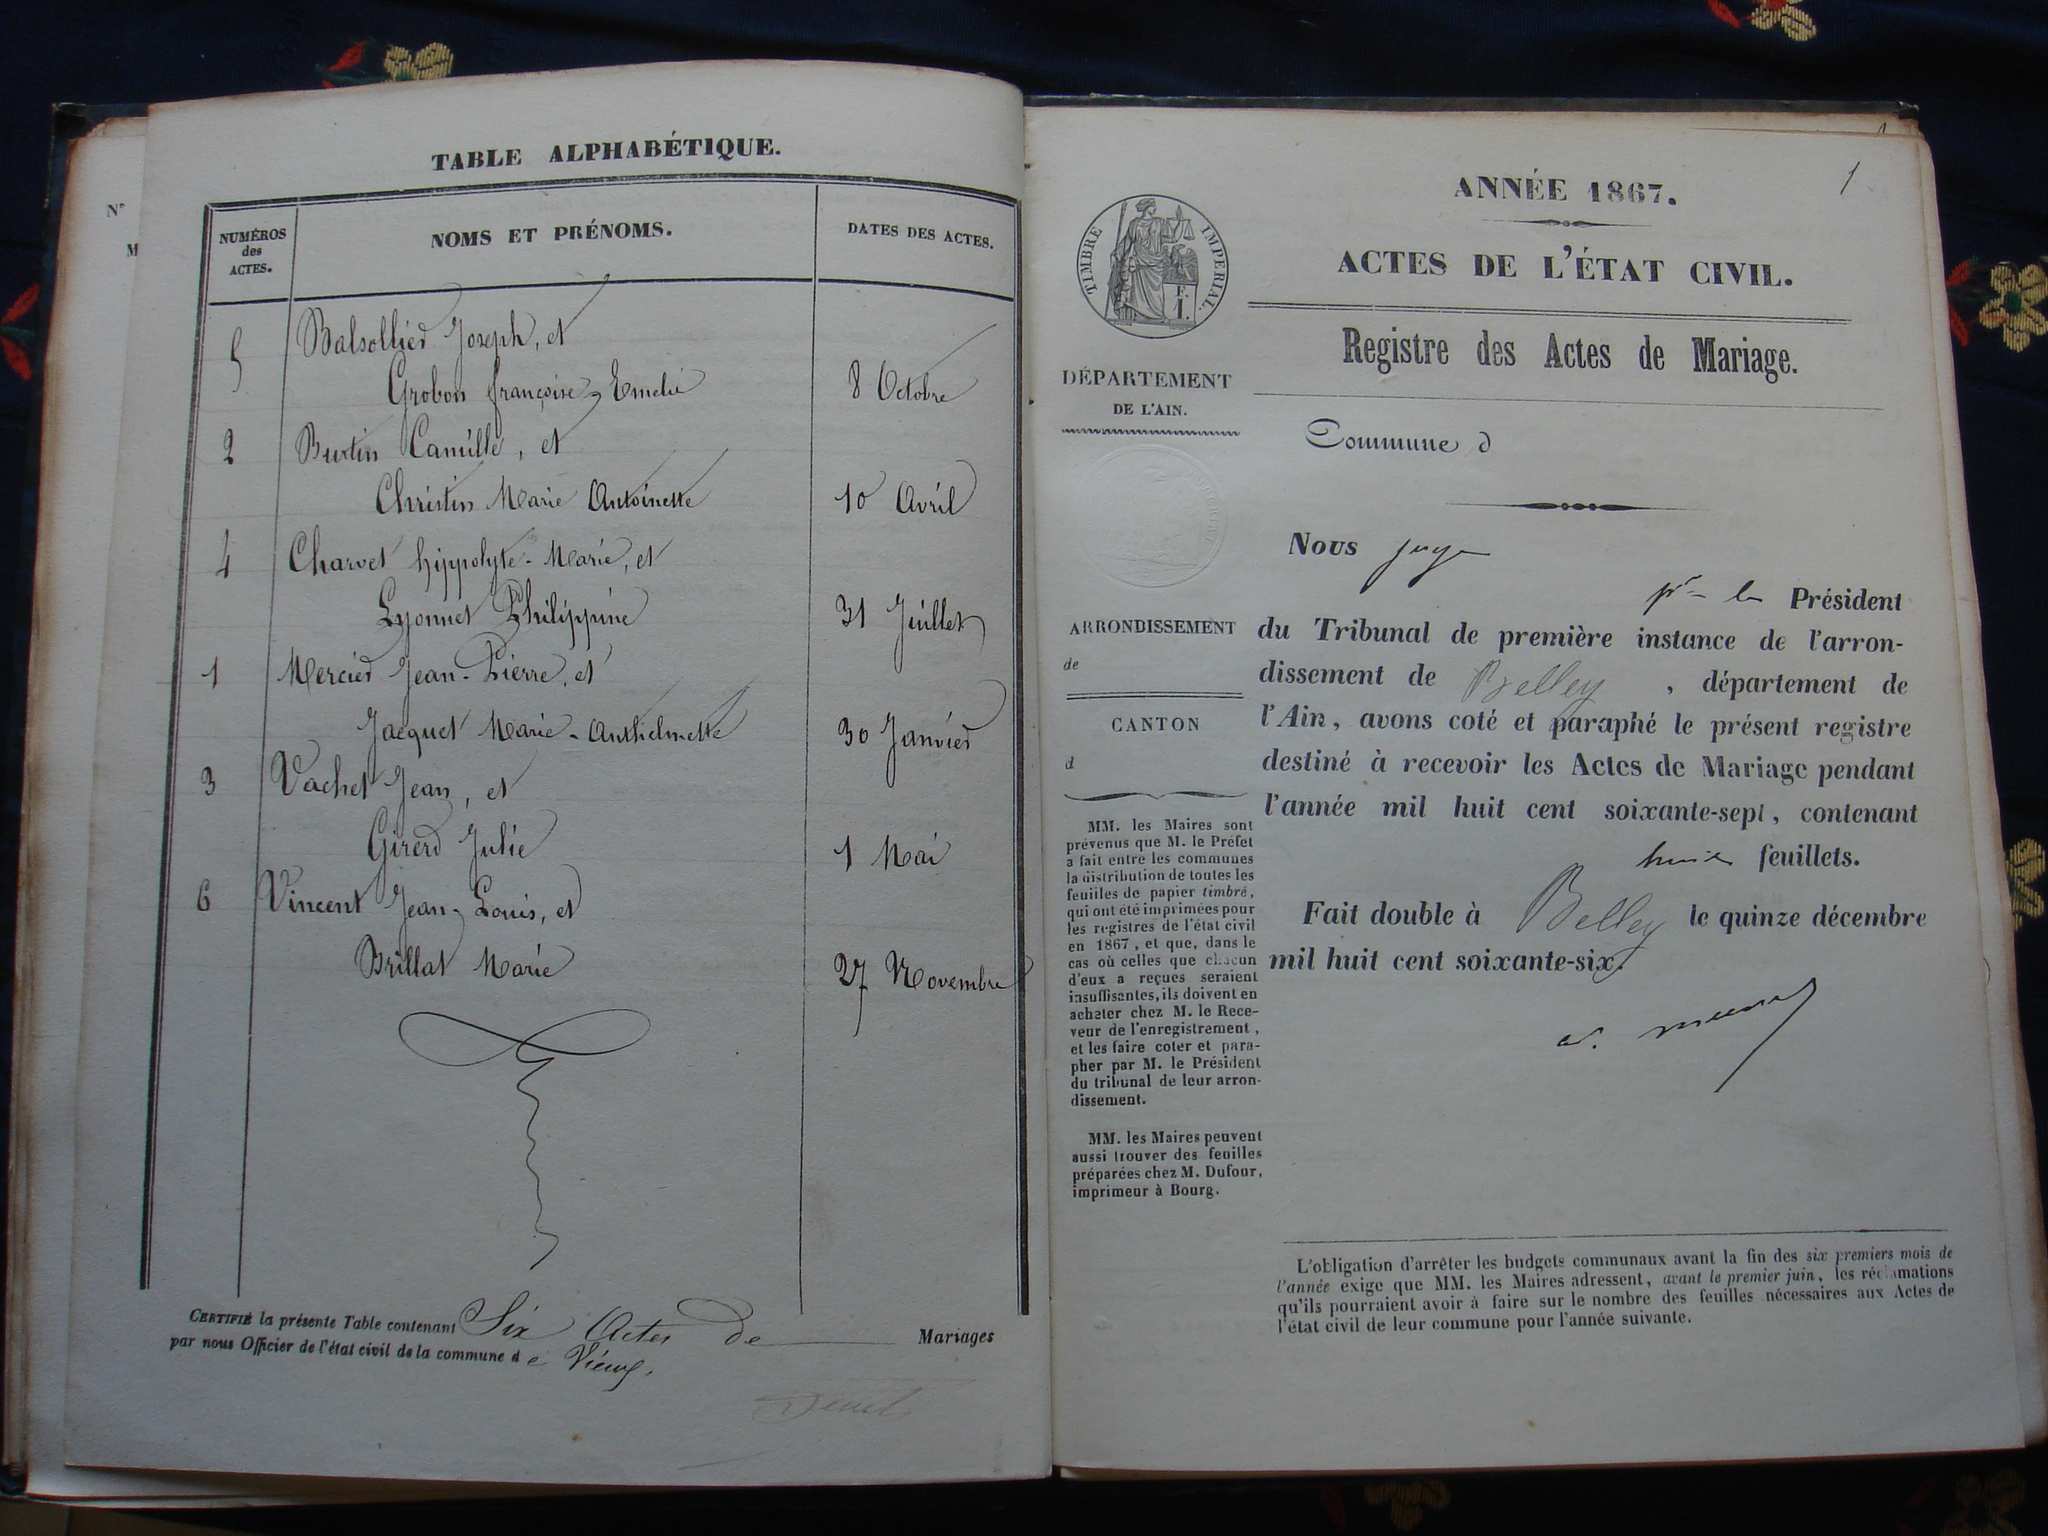 N°
M
TABLE ALPHABÉTIQUE.
NUMÉROS
des
ACTES.
NOMS ET PRÉNOMS.
DATES DES ACTES.
5 Balsollier Joseph, et
Grobon françoise-Emelie 8 Octobre
2 Burtin Camille, et
Christin Marie Antoinette 10 Avril
4 Charvet hippolyte-Marie, et
Lyonnet Philippine 31 Juillet
1 Mercier Jean-Pierre, et
Jacquet Marie-Anthelmette 30 Janvier
3 Vachet Jean, et
Girerd Julie 1 Mai
6 Vincent Jean-Louis, et
Brillat Marie 27 Novembre
CERTIFIÉ la présente Table contenant Six Actes de Mariages
par nous Officier de l'état civil de la commune d e Vieu.
1
ANNÉE 1867.
ACTES DE L'ÉTAT CIVIL.
Registre des Actes de Mariage.
TIMBRE IMPERIAL.
E.
I.
DÉPARTEMENT
DE L'AIN.
ARRONDISSEMENT
de
CANTON
d
MM. les Maires sont
prévenus que M. le Préfet
a fait entre les communes
la distribution de toutes les
feuilles de papier timbré,
qui ont été imprimées pour
les registres de l'état civil
en 1867, et que, dans le
cas où celles que chacun
d'eux a reçues seraient
insuffisantes, ils doivent en
acheter chez M. le Rece-
veur de l'enregistrement,
et les faire coter et para-
pher par M. le Président
du tribunal de leur arron-
dissement.
MM. les Maires peuvent
aussi trouver des feuilles
préparées chez M. Dufour,
imprimeur à Bourg.
Commune d
Nous juge
pr le Président
du Tribunal de première instance de l'arron-
dissement de Belley, département de
l'Ain, avons coté et paraphé le présent registre
destiné à recevoir les Actes de Mariage pendant
l'année mil huit cent soixante-sept, contenant
huit feuillets.
Fait double à Belley le quinze décembre
mil huit cent soixante-six.
L'obligation d'arrêter les budgets communaux avant la fin des six premiers mois de
l'année exige que MM. les Maires adressent, avant le premier juin, les réclamations
qu'ils pourraient avoir à faire sur le nombre des feuilles nécessaires aux Actes de
l'état civil de leur commune pour l'année suivante.